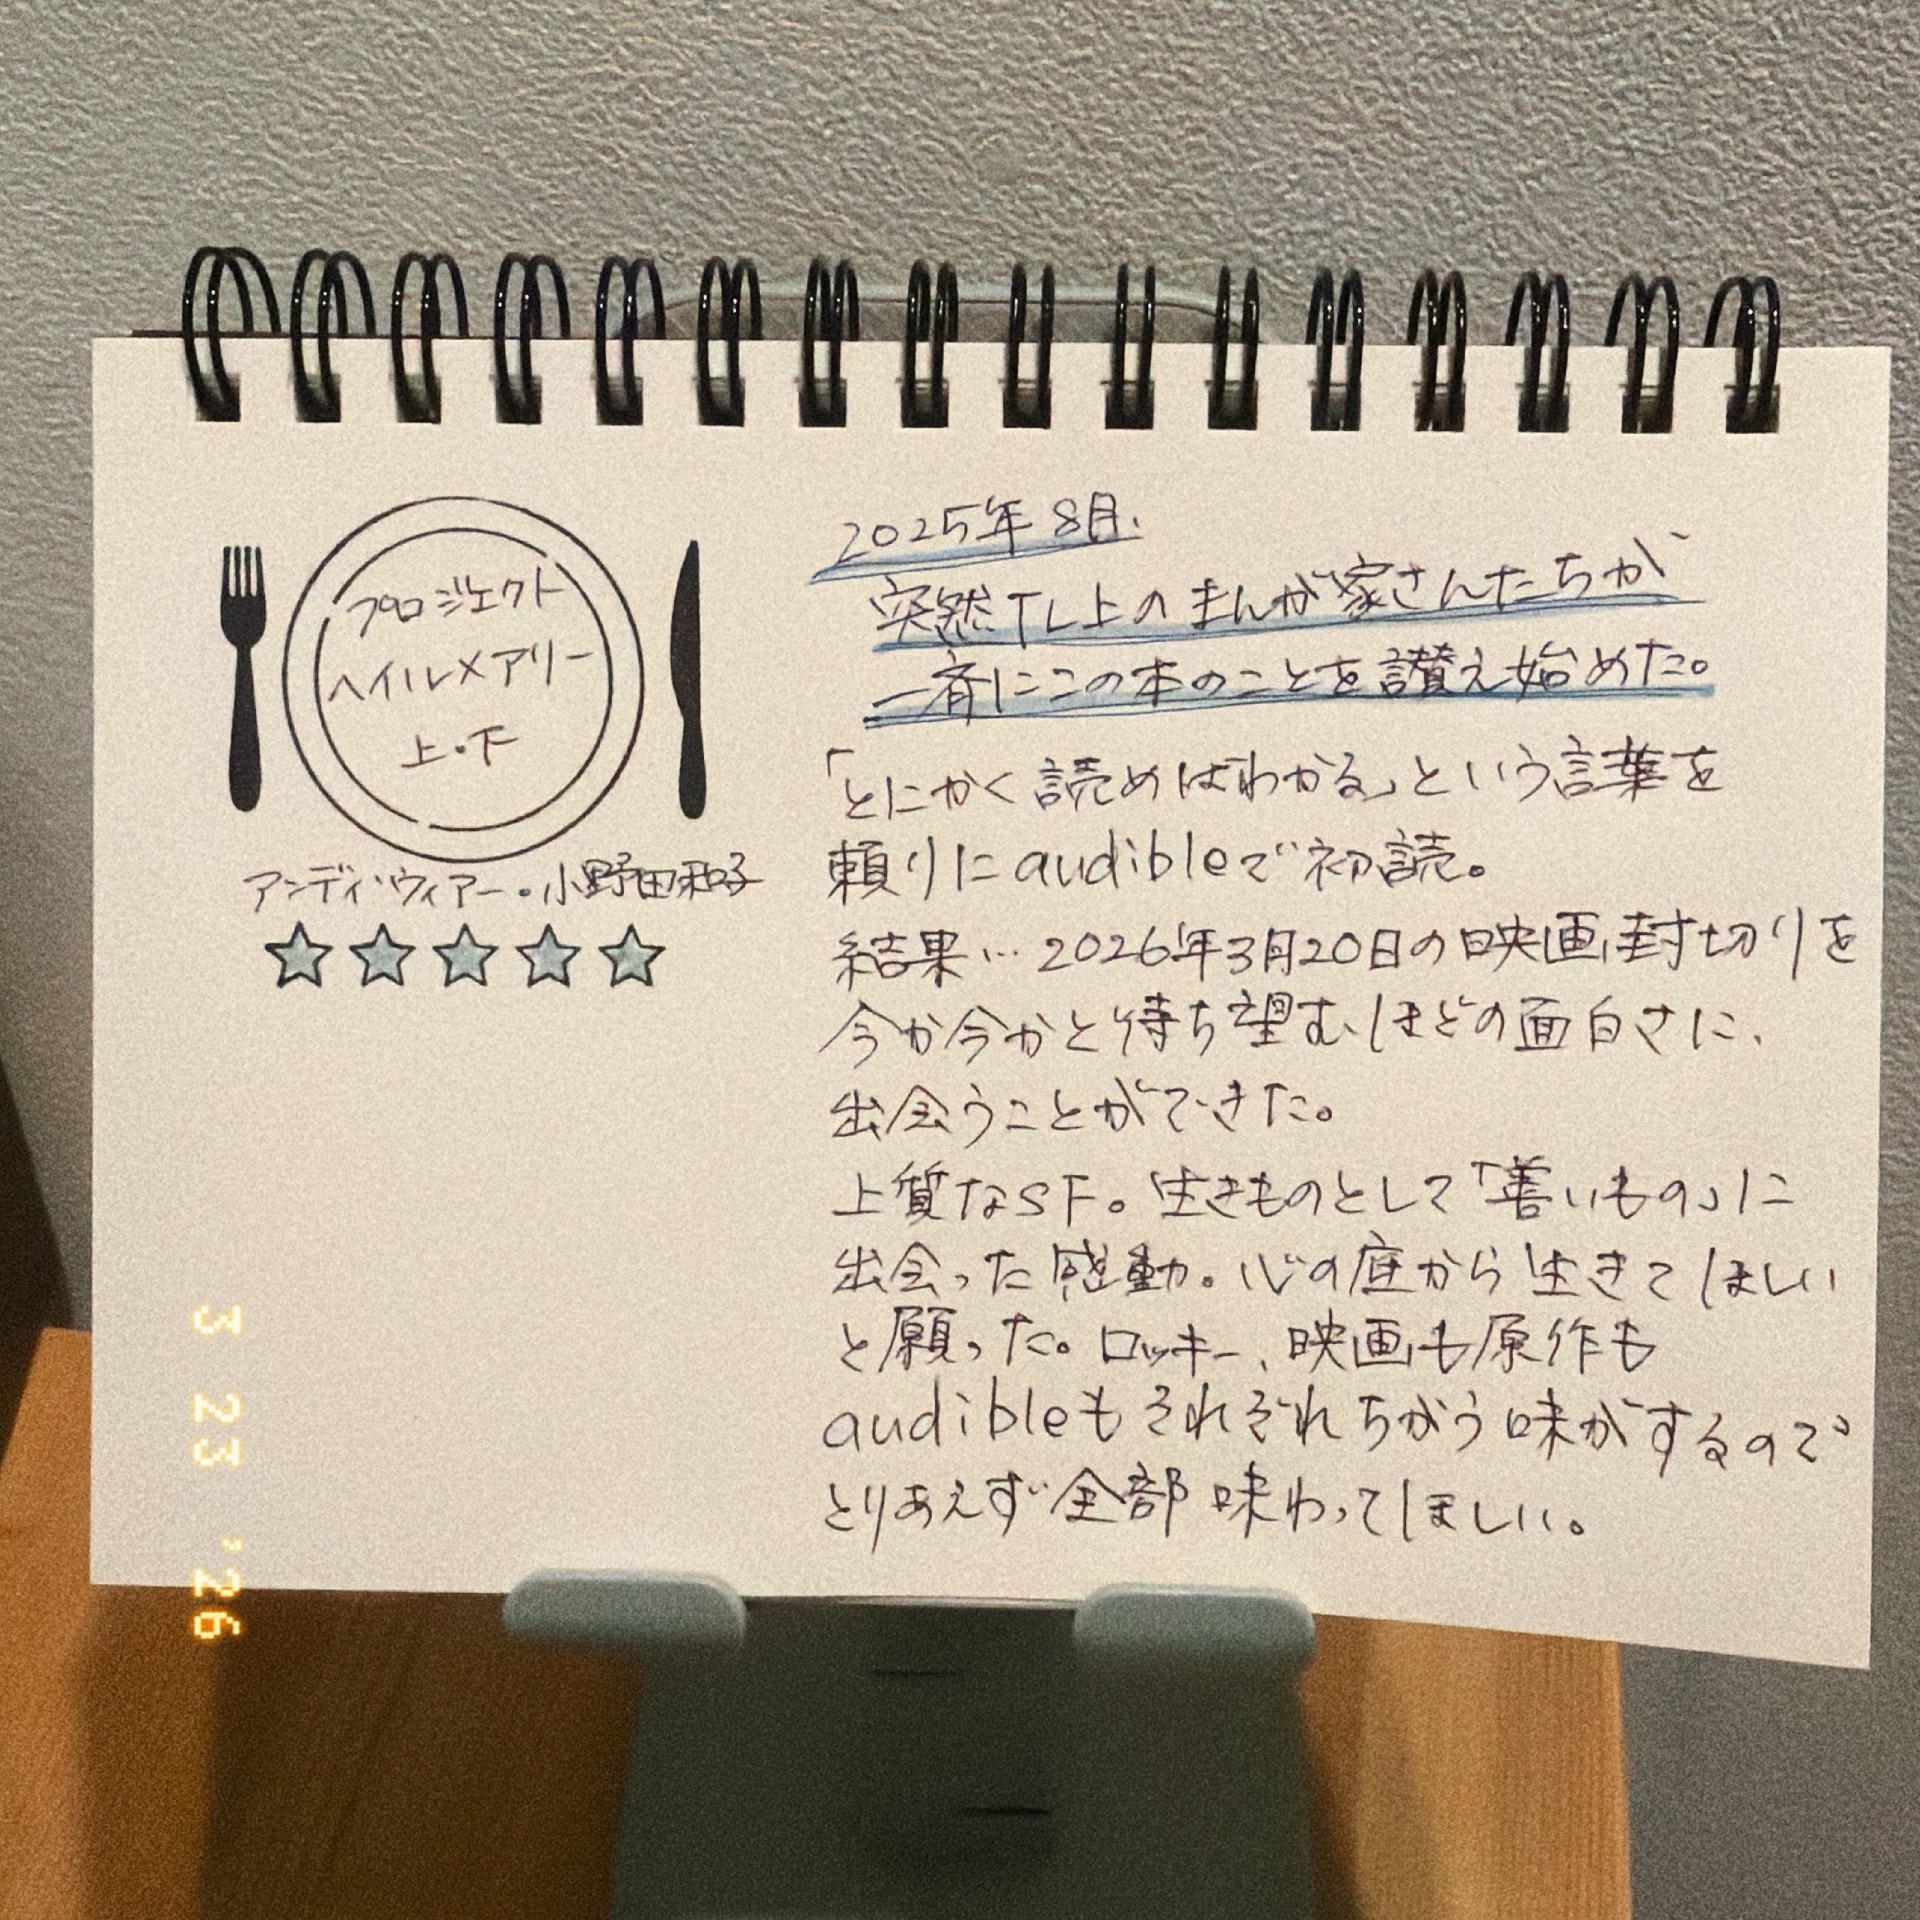 プロジェクト
ヘイルメアリー
上・下
アンディ・ウィアー・小野田和子
2025年8月、
突然TL上のまんが家さんたちが
一斉にこの本のことを讃え始めた。
「とにかく読めばわかる」という言葉を
頼りにaudibleで初読。
結果…2026年3月20日の映画封切りを
今か今かと待ち望むほどの面白さに、
出会うことができた。
上質なSF。生きものとして「善いもの」に
出会った感動。心の底から生きてほしい
と願った。ロッキー、映画も原作も
audibleもそれぞれちがう味がするので
とりあえず全部味わってほしい。
3 23 '26